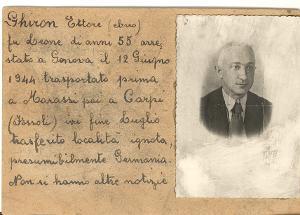 Ghiron Ettore (ebreo)
fu Leone di anni 55 arre,
stato a Genova il 12 Giugno
1944 trasportato prima
a Marassi poi a Carpi
(Fossoli) ivi fine Luglio
trasferito località ignota,
presumibilmente Germania.
Non si hanno altre notizie